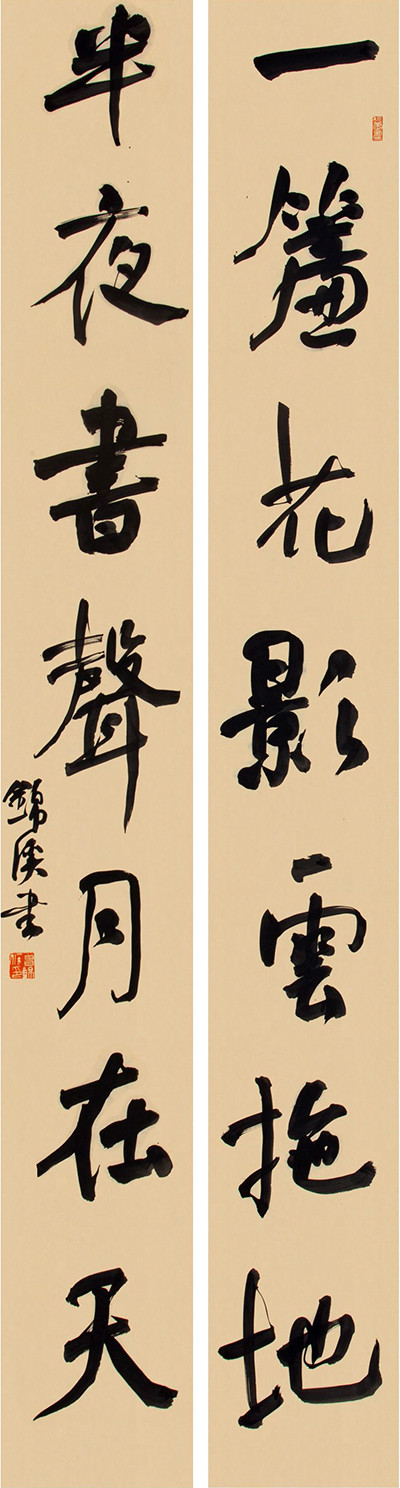 一簾花影雲拖地
半夜書聲月在天
錦溪书